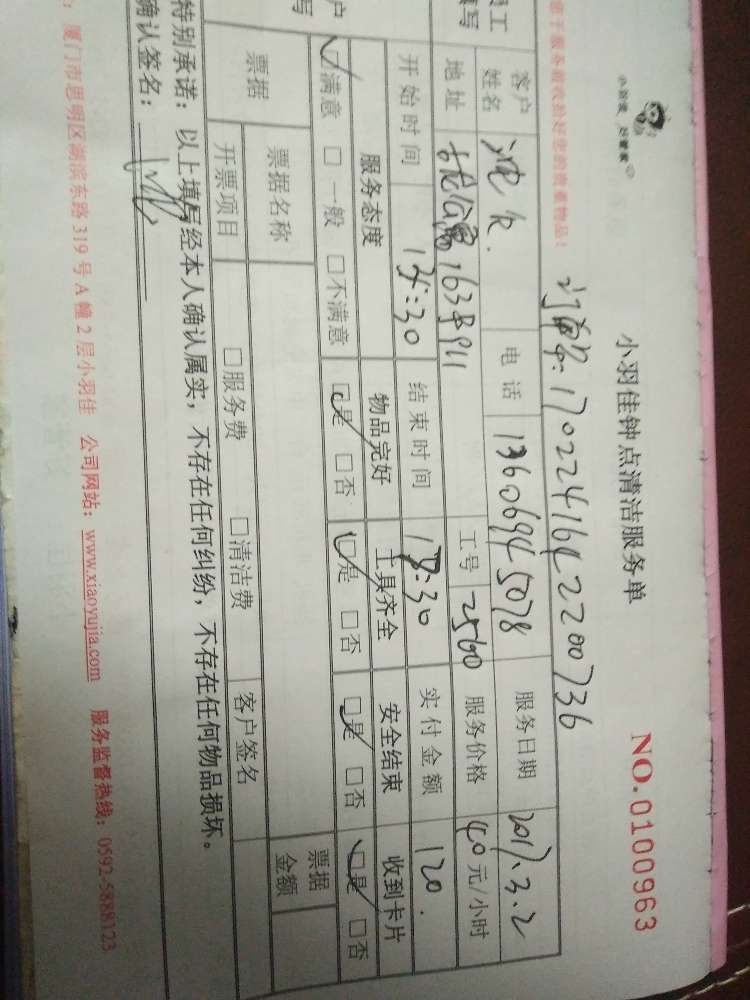 小羽佳 好管家
小羽佳钟点清洁服务单
NO.0100963
订单号:17022416422200736
客户姓名 电话 13606945078 服务日期 2017.3.2
地址 1638911 工号 2560 服务价格 40元/小时
开始时间 14:30 结束时间 17:30 实付金额 120.
服务态度 物品完好 工具齐全 安全结束 收到卡片
☑满意 □一般 □不满意 ☑是 □否 ☑是 □否 ☑是 □否 ☑是 □否
票据 票据名称 票据金额
开票项目 □服务费 □清洁费 客户签名
特别承诺:以上填写经本人确认属实,不存在任何纠纷,不存在任何物品损坏。
确认签名:
厦门市思明区湖滨东路319号A幢2层小羽佳 公司网站:www.xiaoyujia.com 服务监督热线:0592-5888123